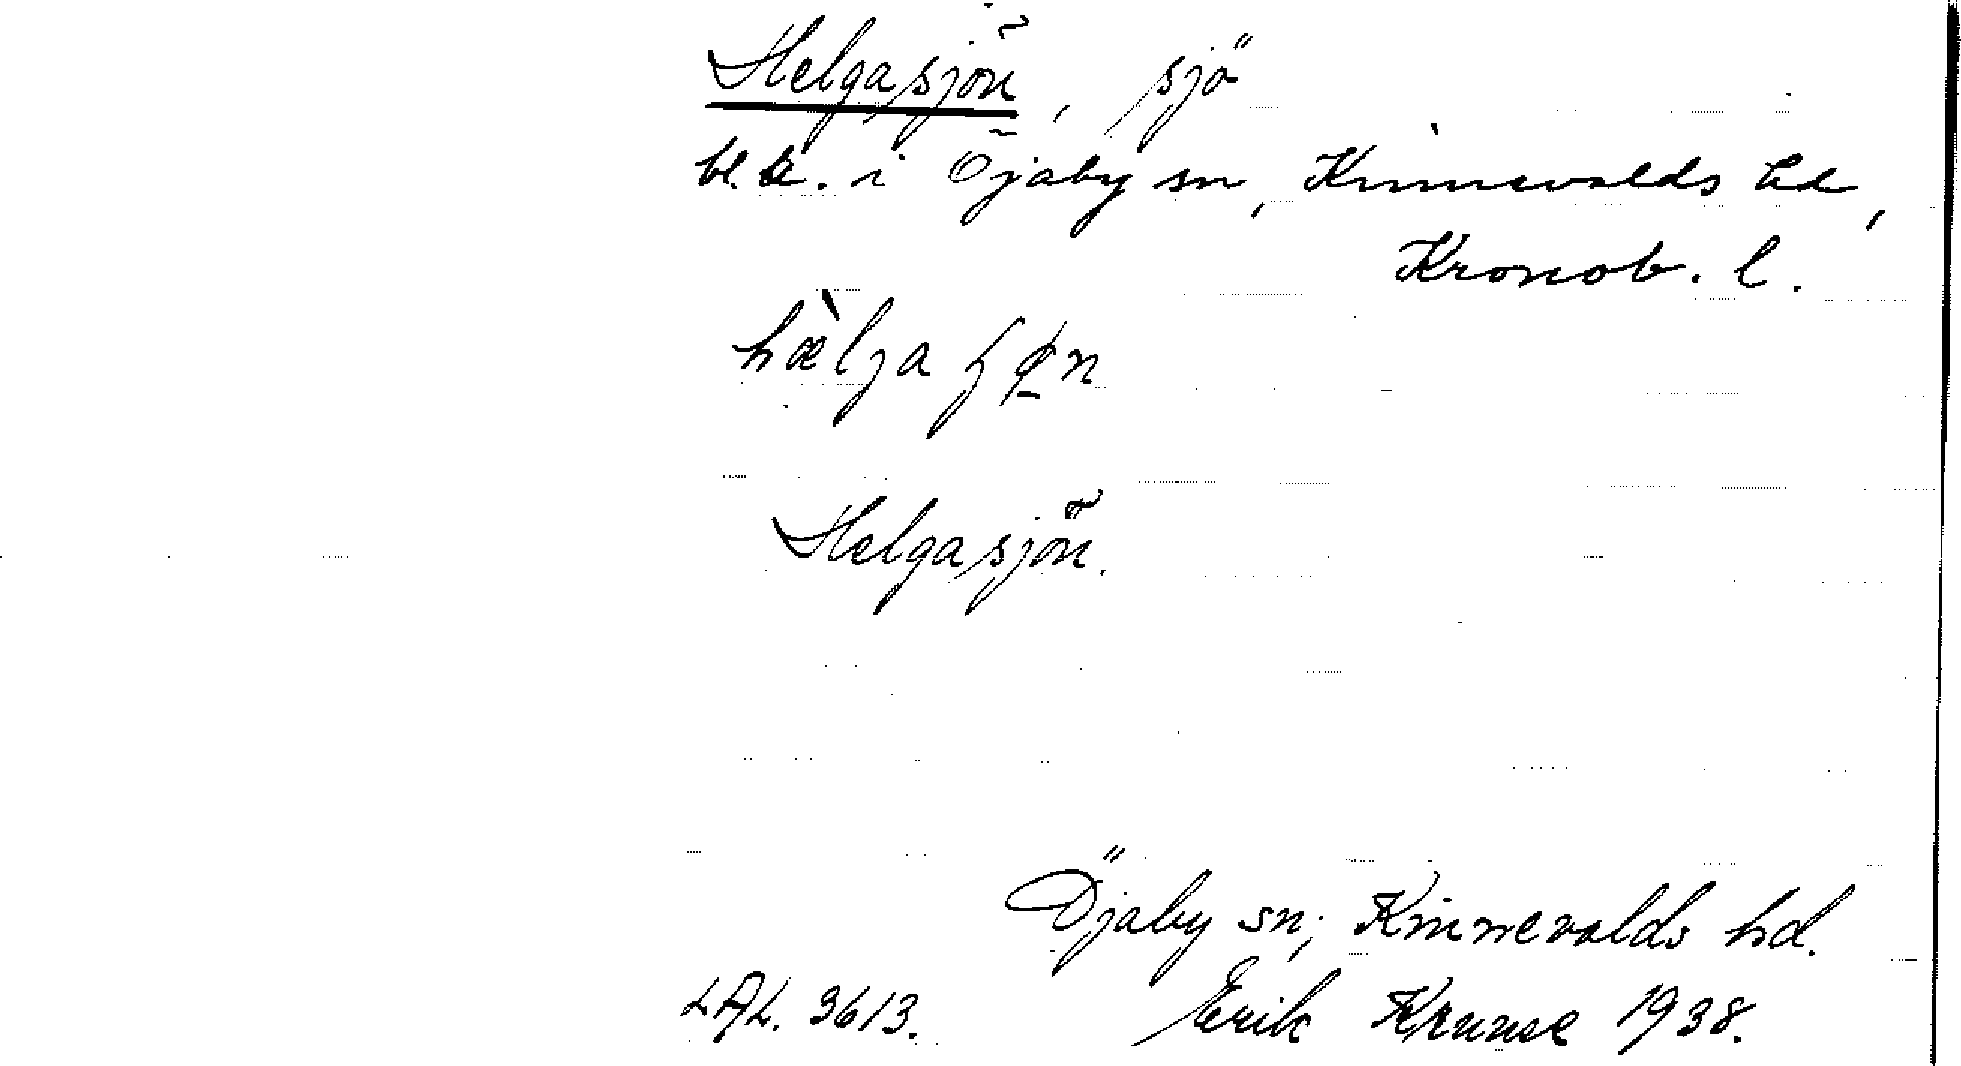 Helgasjön, sjö
bl. a. i Öjaby sn, Kinnevalds hd,
Kronob. l.
hæ̀lja ʃø̠n
Helgasjön.
Öjaby sn; Kinnevalds hd.
LAL. 3613. Erik Kruuse 1938.